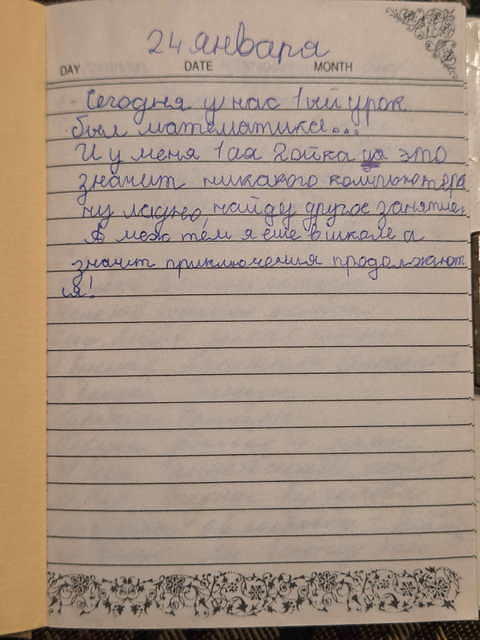 24 января
DAY DATE MONTH
Сегодня у нас 1ый урок
был математика...
И у меня 1ая 2ойка да это
значит никакого компьютера
ну ладно, найду другое занятие.
А меж тем я еще в школе а
значит приключения продолжают
ся!